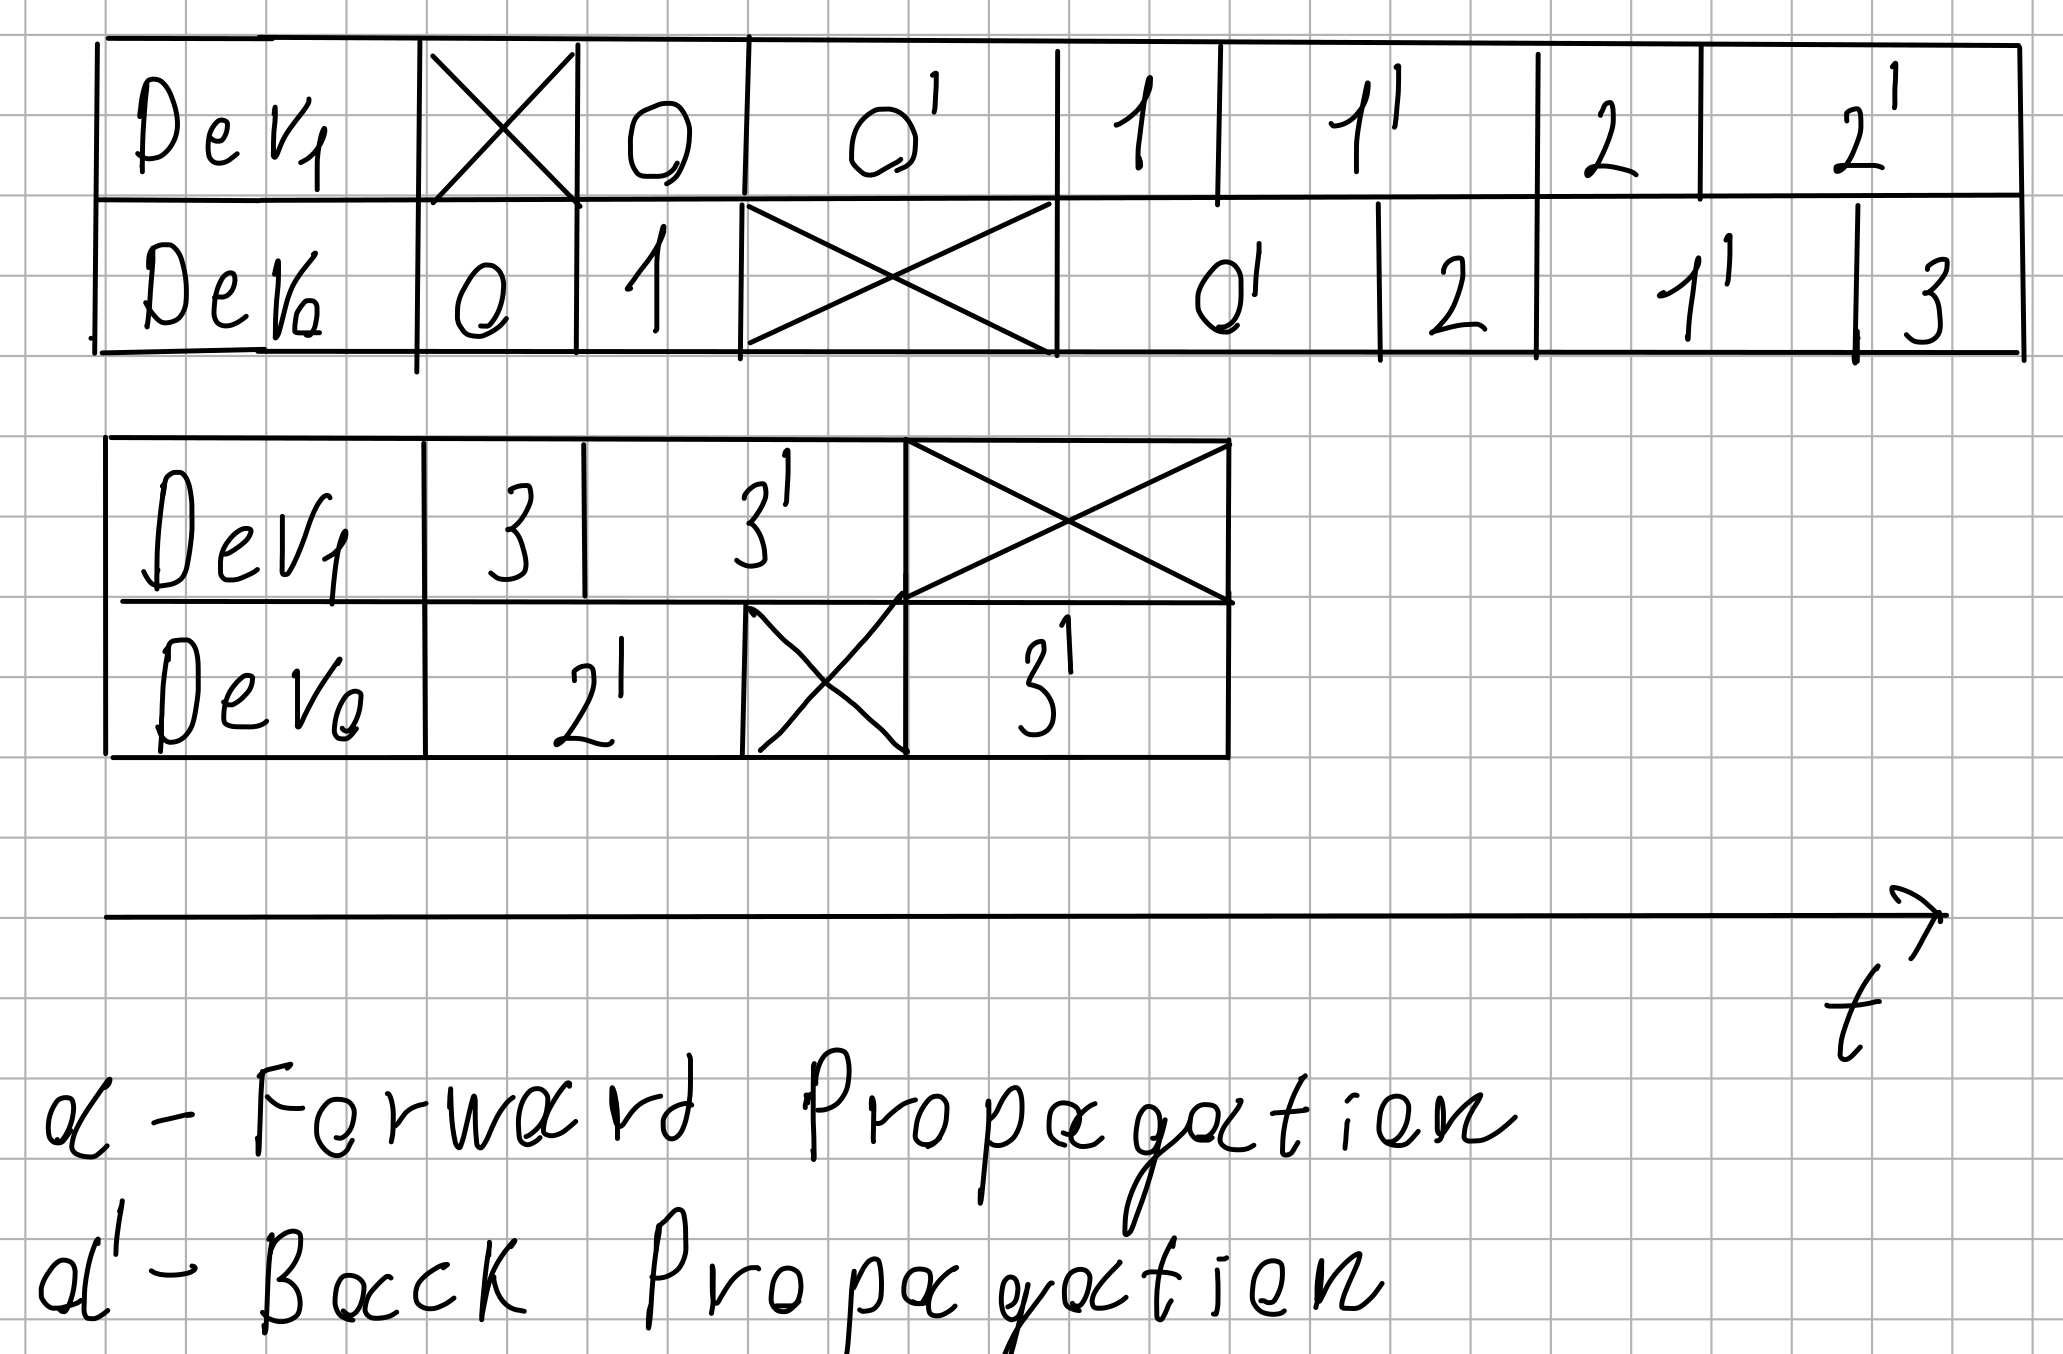 Dev₁ 0 0' 1 1' 2 2'
Dev₀ 0 1 0' 2 1' 3
Dev₁ 3 3'
Dev₀ 2' 3'
t
a - Forward Propagation
a' - Back Propagation